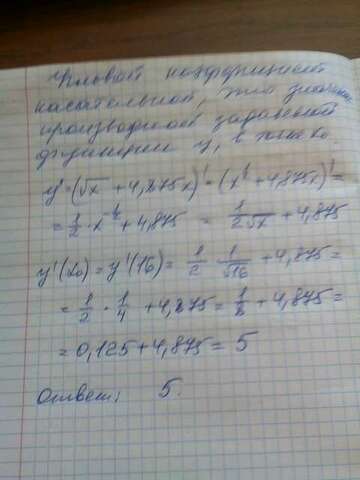 Угловой коэффициент
касательной, это значение
производной заданной
функции y, в точке x₀
y' = (√x + 4,875x)' = (x^½ + 4,875x)' =
= 1/2 · x^-½ + 4,875 = 1/(2√x) + 4,875
y'(x₀) = y'(16) = 1/2 · 1/√16 + 4,875 =
= 1/2 · 1/4 + 4,875 = 1/8 + 4,875 =
= 0,125 + 4,875 = 5
Ответ: 5.